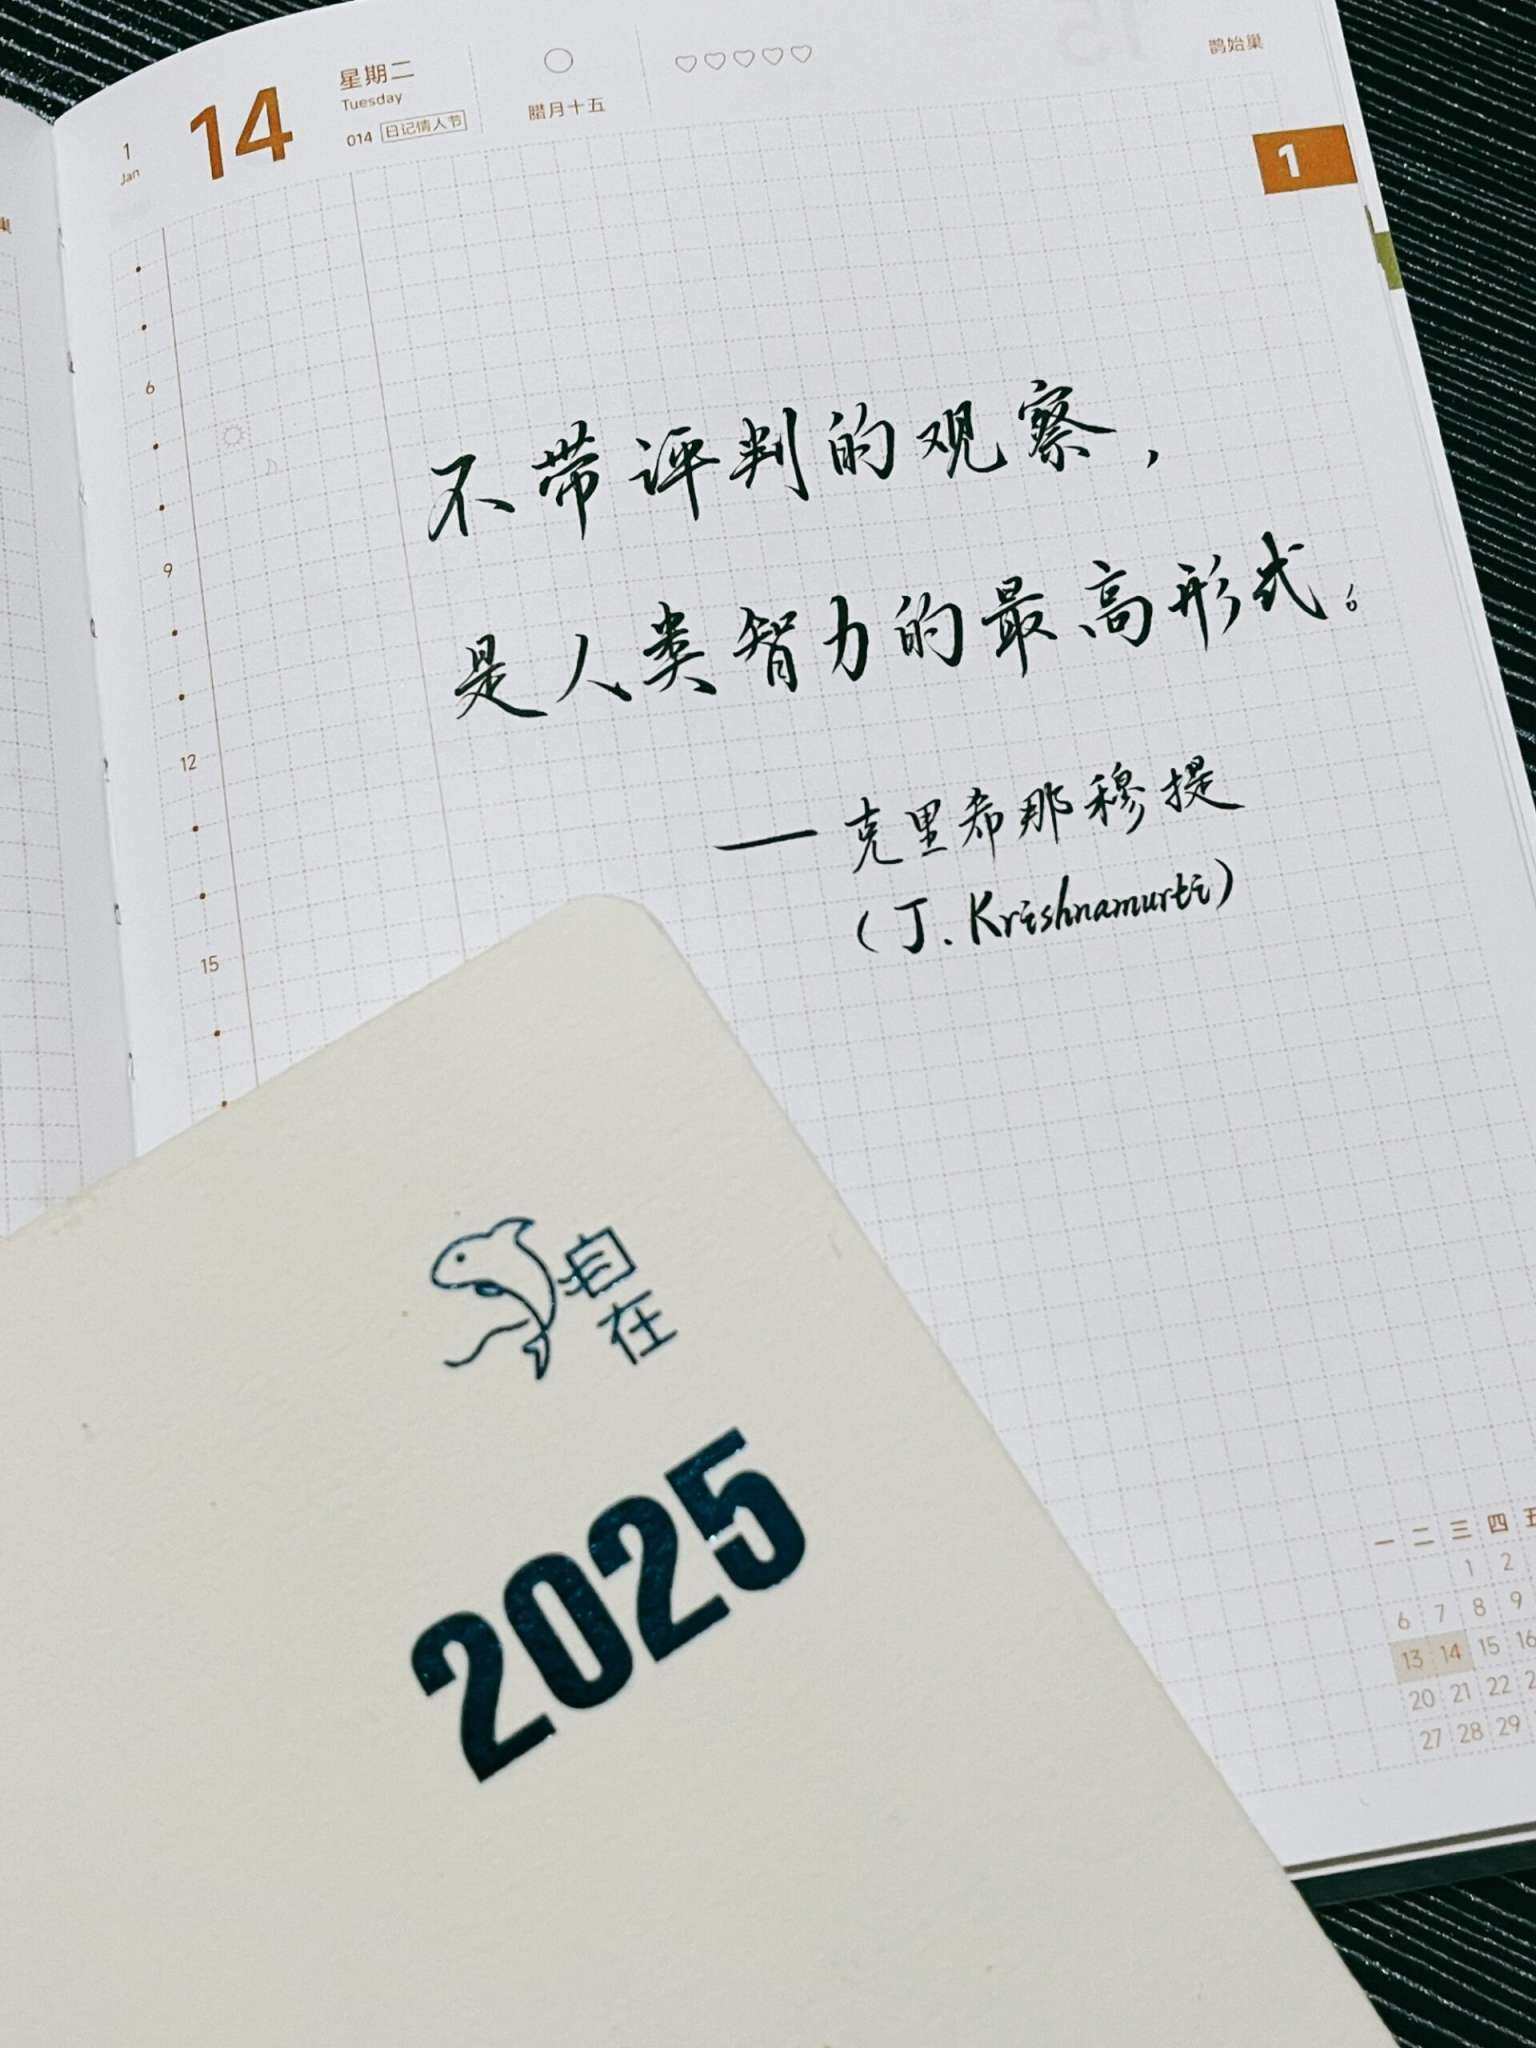 1
Jan
14
星期二
Tuesday
014 日记情人节
腊月十五
鹊始巢
1
巢
6
9
12
15
不带评判的观察，
是人类智力的最高形式。
——克里希那穆提
(J. Krishnamurti)
自在
2025
一 二 三 四 五
1 2
6 7 8 9
13 14 15 16
20 21 22 2
27 28 29